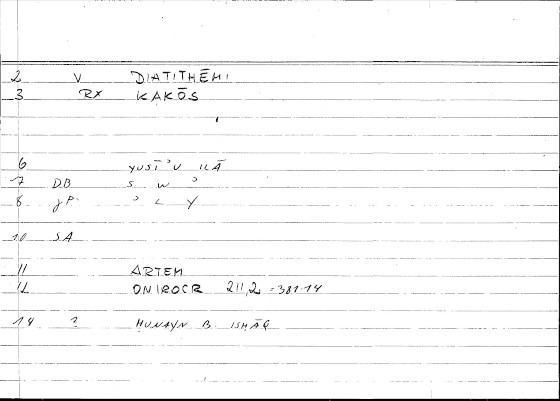 2 V DIATITHĒMI
3 RX KAKŌS
6 YUSĪʾU ILĀ
7 DB S W ʾ
8 JP ʾ L Y
10 SA
11 ARTEM
12 ONIROCR 211,2 = 381.14
14 ? HUNAYN B. ISHĀQ